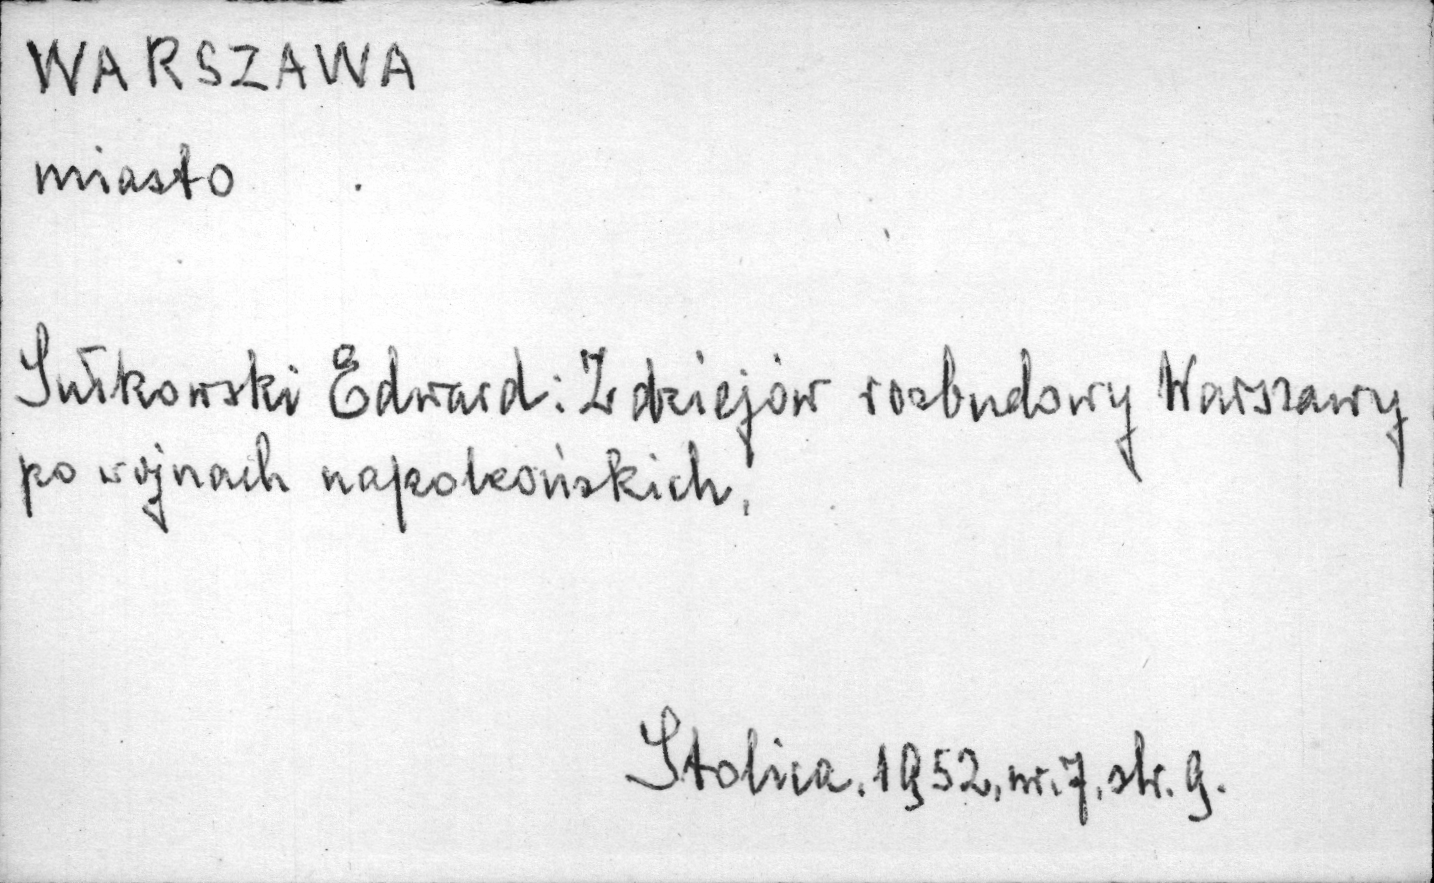 WARSZAWA
miasto
Sułkowski Edward: Z dziejów rozbudowy Warszawy
po wojnach napoleońskich.
Stolica. 1952, nr. 7, str. 9.